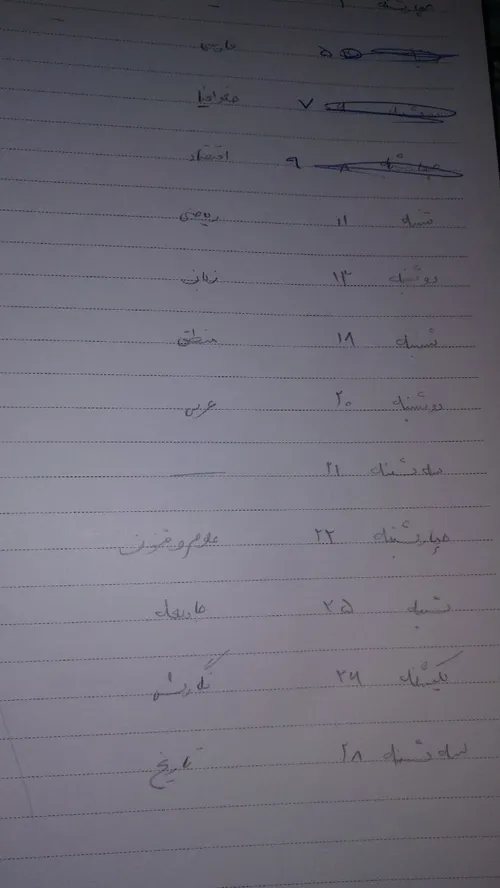 چهارشنبه
۵ فارسی
سه‌شنبه ۷ جغرافیا
چهارشنبه ۹ اقتصاد
شنبه ۱۱ ریاضی
دوشنبه ۱۳ زبان
شنبه ۱۸ منطق
دوشنبه ۲۰ عربی
سه شنبه ۲۱ —
چهارشنبه ۲۲ علوم و فنون
شنبه ۲۵ جامعه
یکشنبه ۲۶ نگارش
سه شنبه ۲۸ تاریخ